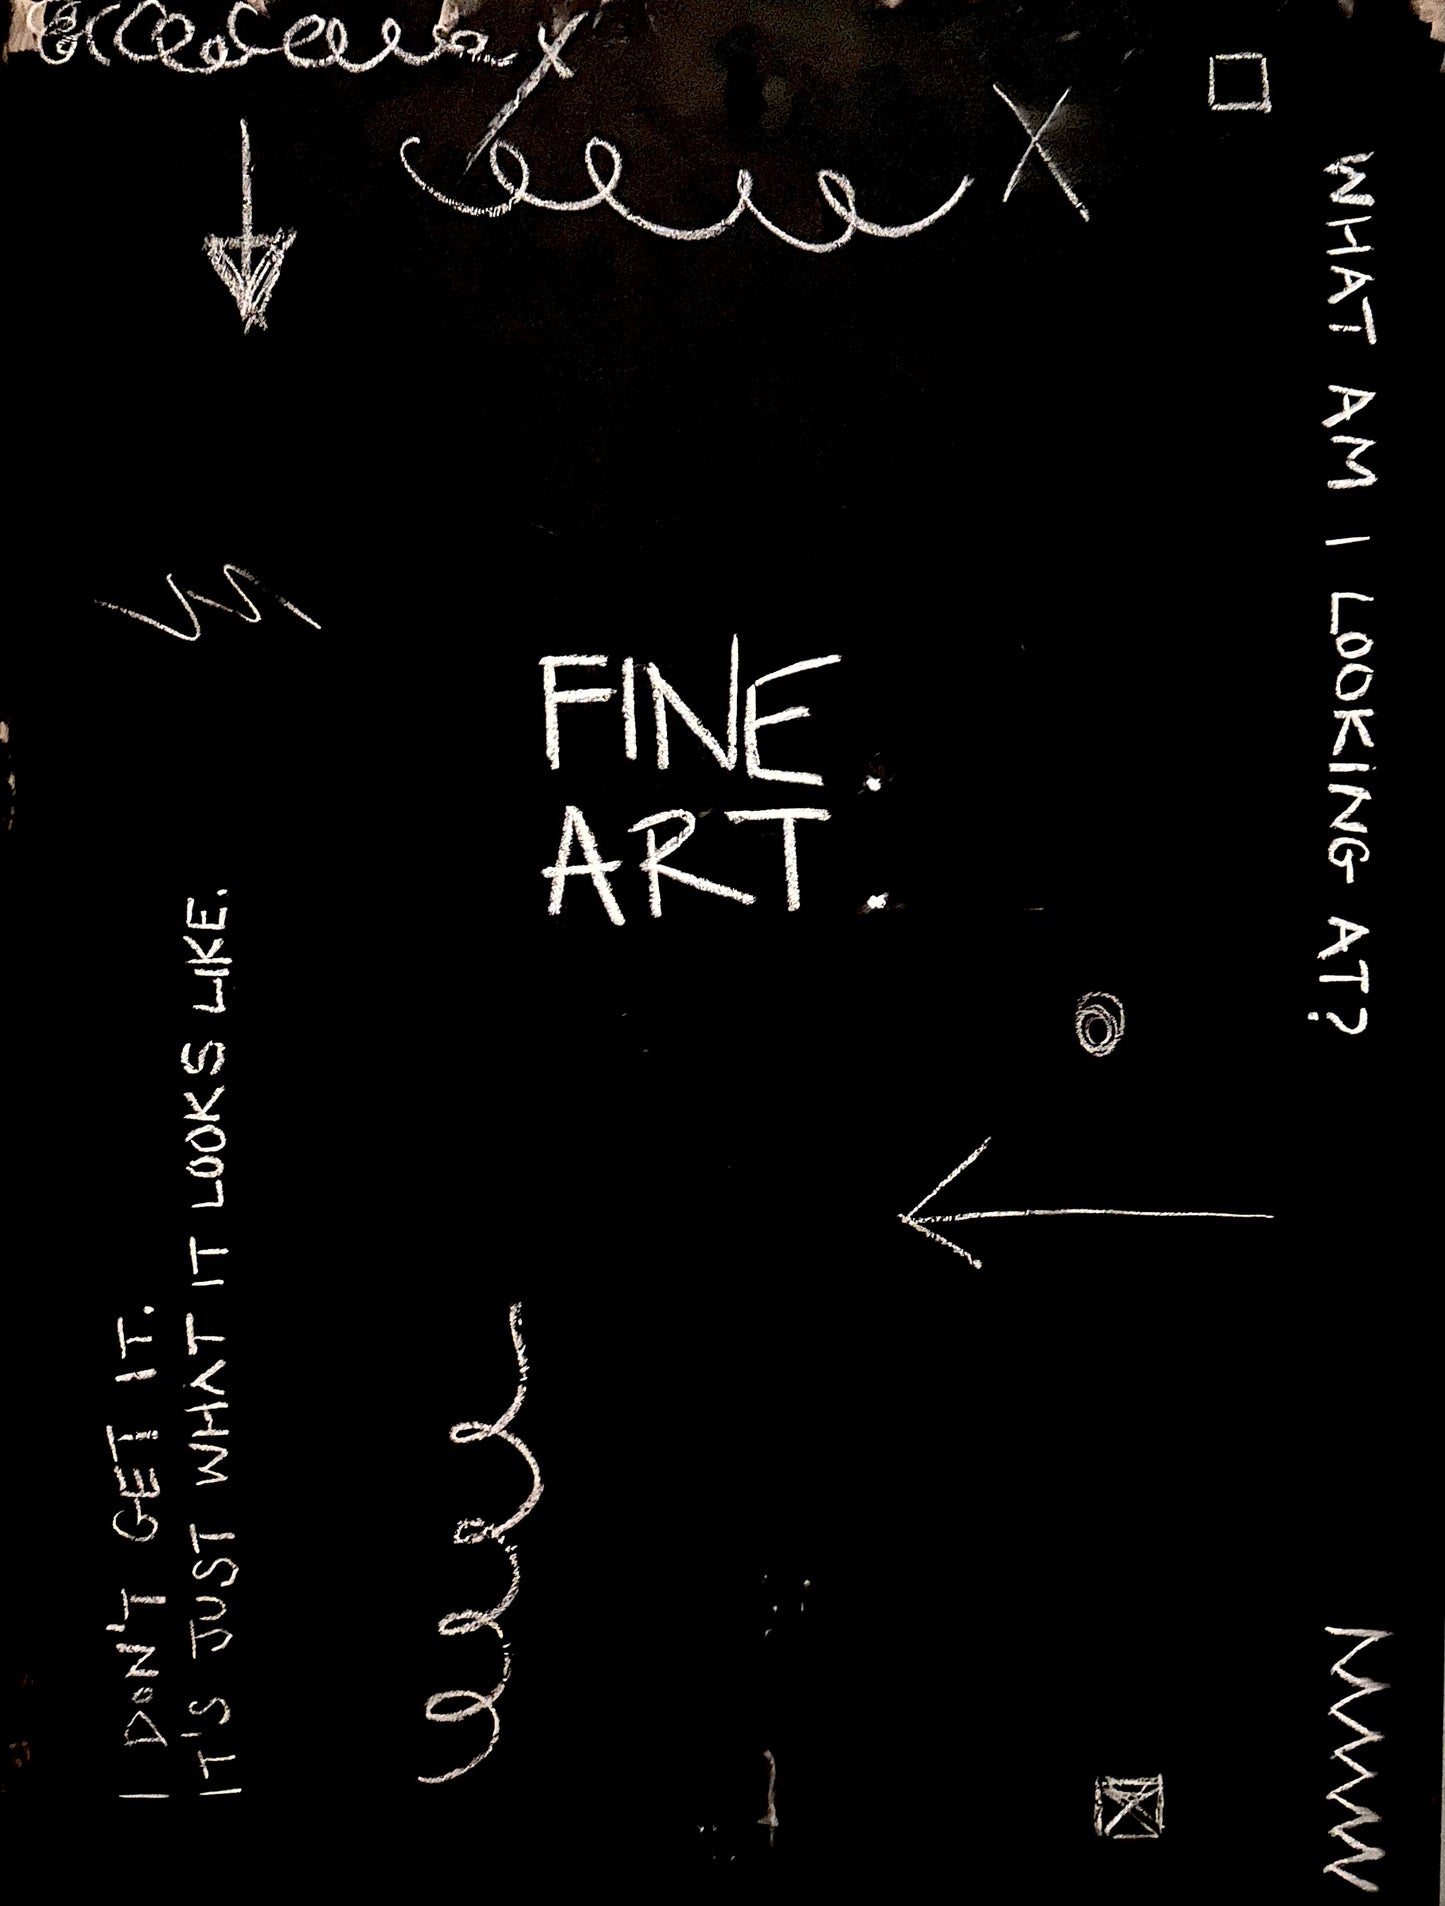 WHAT AM I LOOKING AT?
FINE.
ART.
I DON'T GET IT.
IT'S JUST WHAT IT LOOKS LIKE.